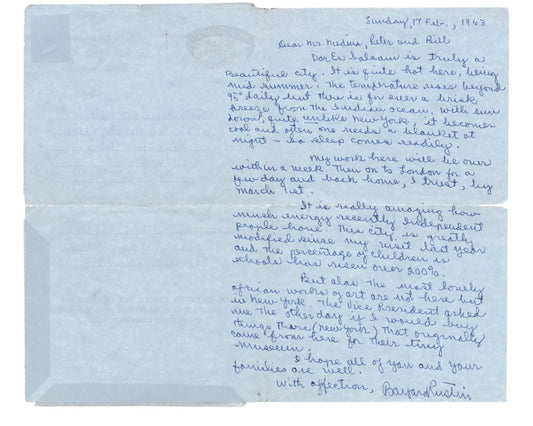 Sunday, 17 Feb., 1963
Dear Mrs. Medina, Peter and Bill
Dar Es Salaam is truly a
Beautiful city. It is quite hot here, being
mid summer. The temperature rises beyond
95° daily but there is for ever a brisk
breeze from the Indian Ocean. With sun
down, quite unlike New York, it becomes
cool and often one needs a blanket at
night - so sleep comes readily.
My work here will be over
within a week. Then on to London for a
few day and back home, I trust, by
March 1st.
It is really amazing how
much energy recently Independent
people have. This city is greatly
modified since my visit last year
and the percentage of children in
schools has risen over 200%.
But alas the most lovely
african works of art are not here but
in New York. The Vice President asked
me the other day if I would buy
things there (New York) that originally
came from here for their tiny
museum.
I hope all of you and your
families are well.
With affection, Bayard Rustin